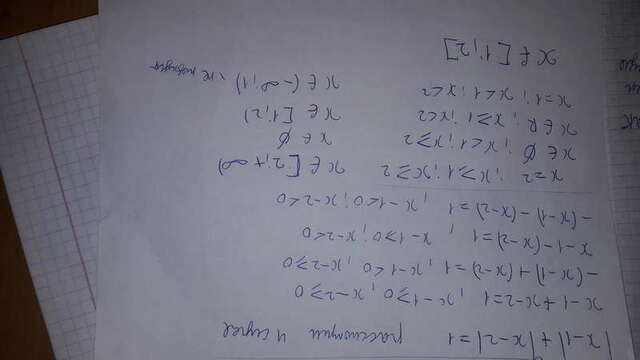 |x-1|+|x-2|=1 рассмотрим 4 случая
x-1+x-2=1 ; x-1≥0 ; x-2≥0
-(x-1)+(x-2)=1 ; x-1<0 ; x-2≥0
x-1-(x-2)=1 ; x-1≥0 ; x-2<0
-(x-1)-(x-2)=1 ; x-1<0 ; x-2<0
x=2 ; x≥1 ; x≥2 x∈[2;+∞)
x∈∅ ; x<1 ; x≥2 x∈∅
x∈R ; x≥1 ; x<2 x∈[1;2)
x=1 ; x<1 ; x<2 x∈(-∞;1) не
x∈[1;2]